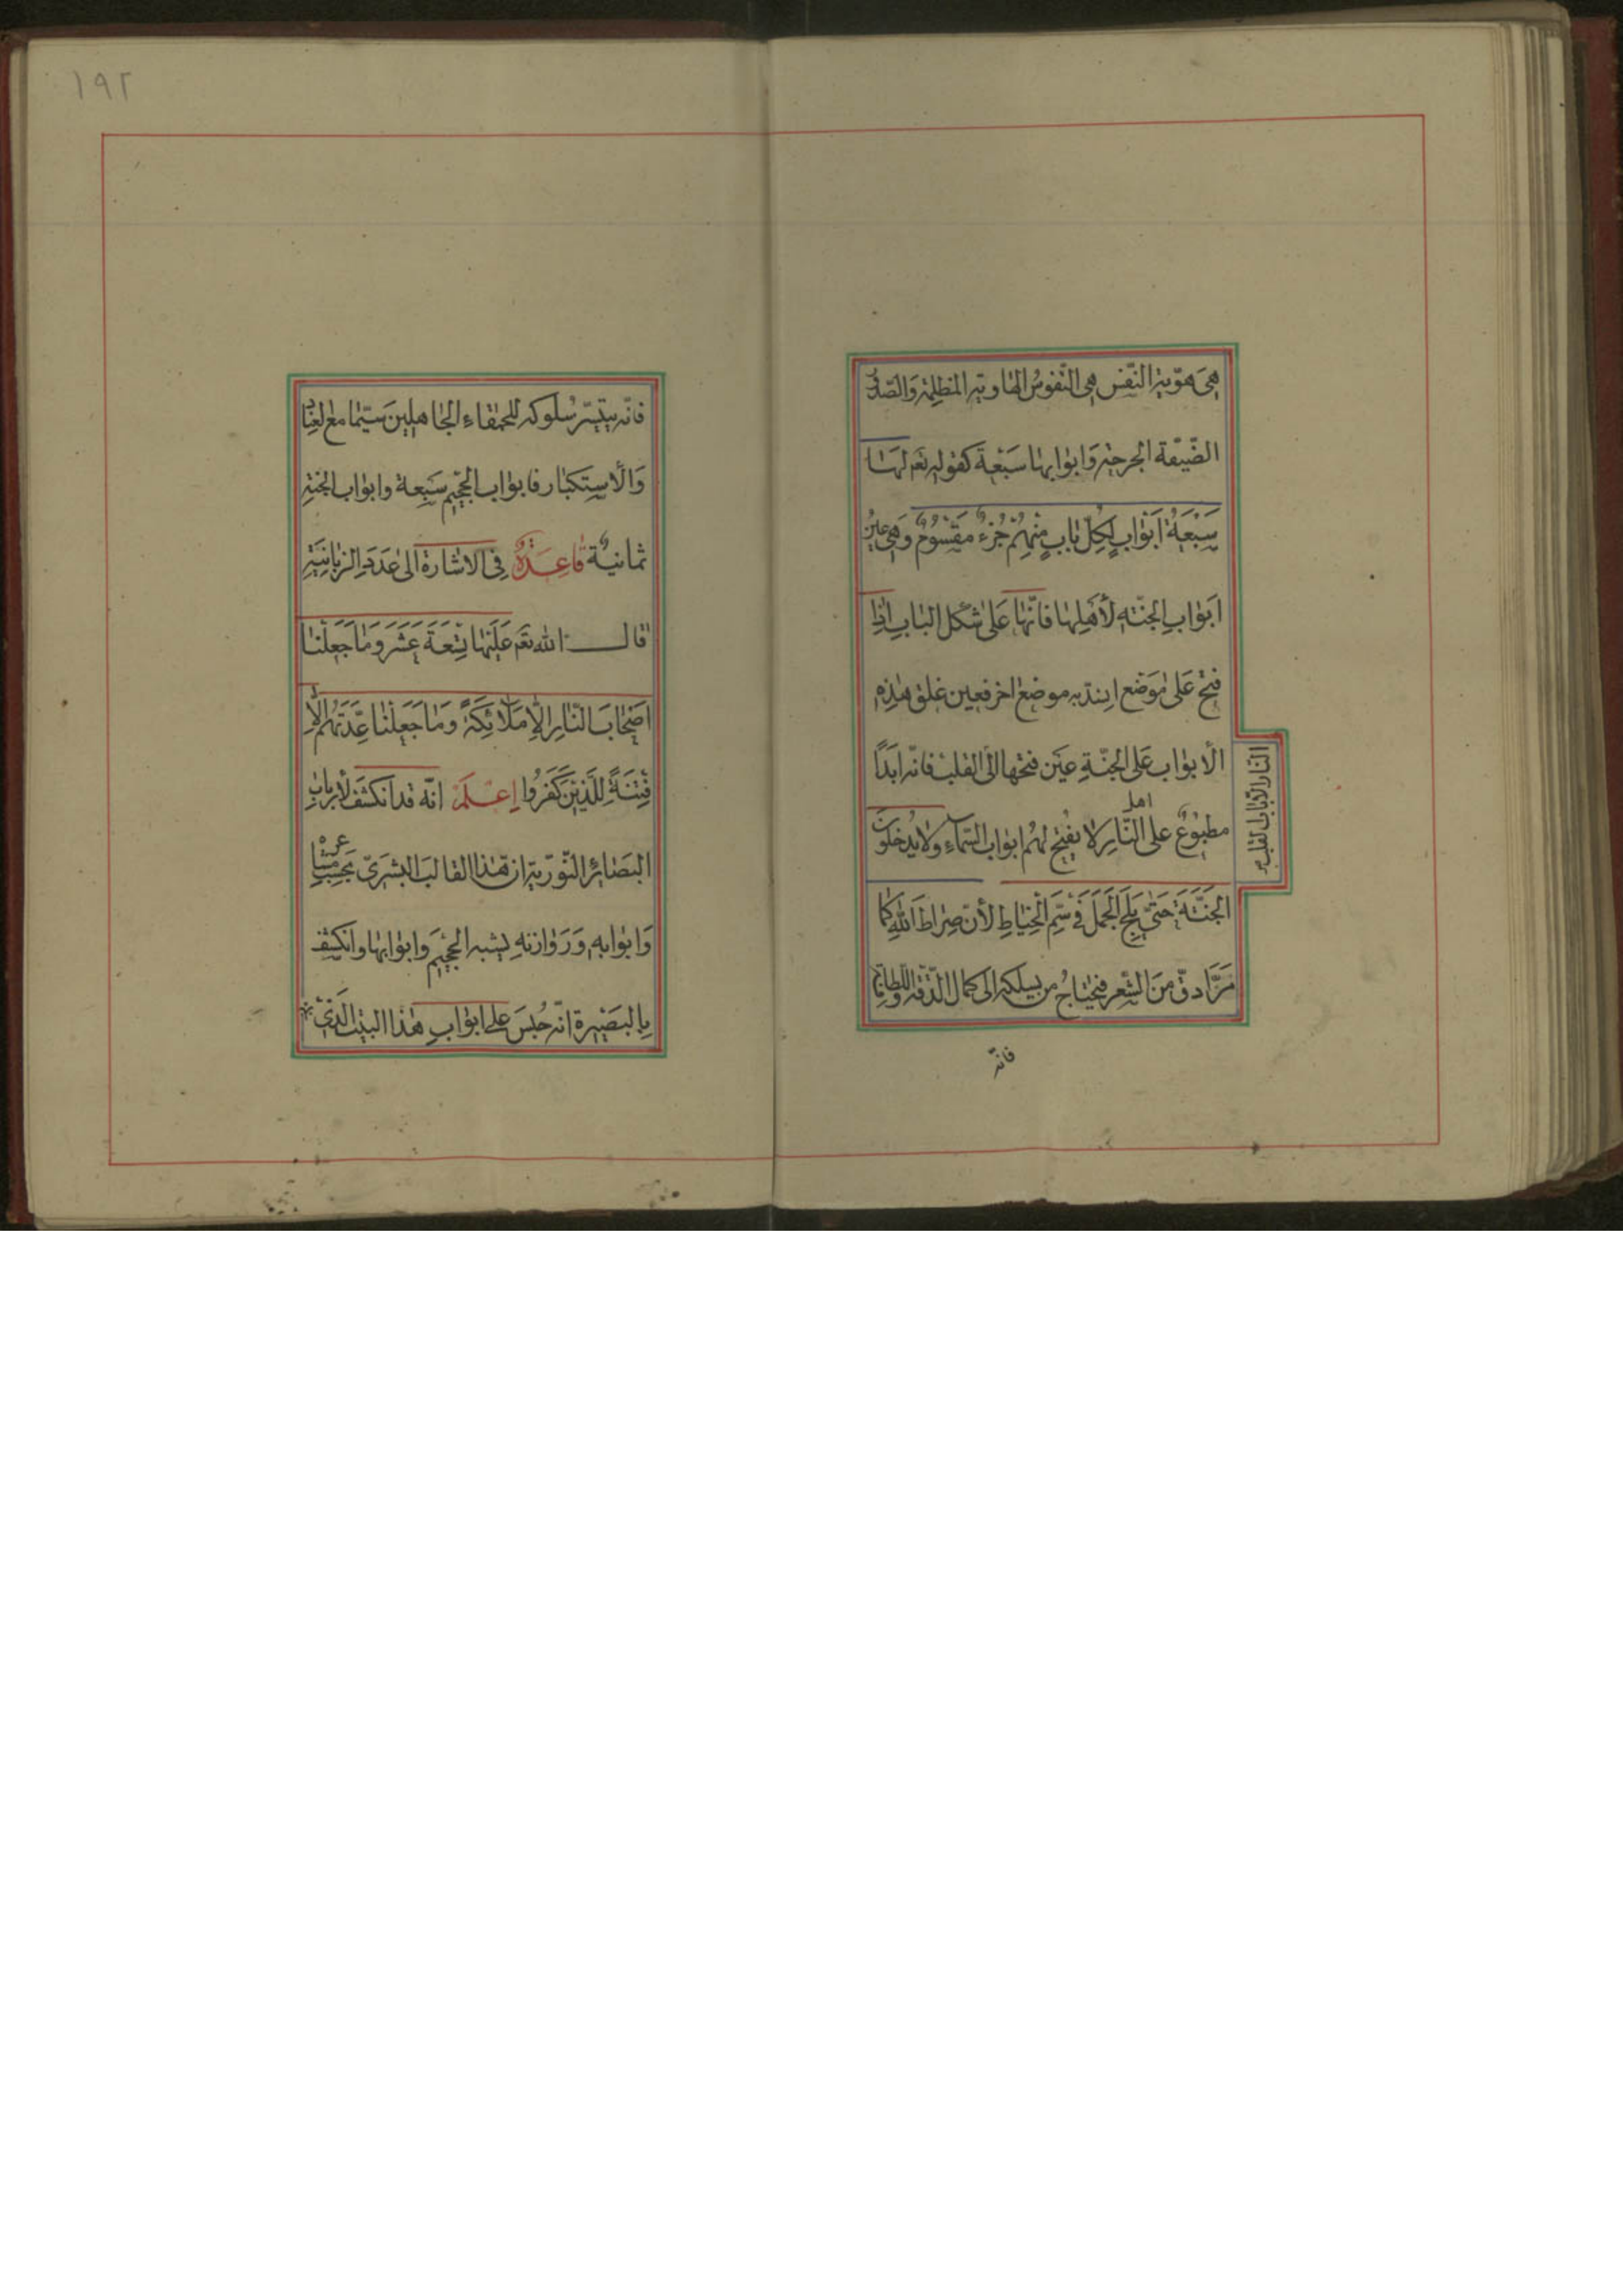 هِیَ هوّیة النّفس هی النّفوس الهاویة المظلمة وَالصّدور
الضّیّقة الحرجة وَابوابها سَبْعة کقوله تعم لَهَا
سَبْعَةُ اَبْوٰابٍ لِکُلِّ بٰابٍ مِنْهُمْ جُزْءٌ مَقْسُومٌ وَهی عین
اَبوابِ الجنّة لأهلِها فانّها عَلی شکل الباب اذا
فتح عَلی مَوضع انسدّ به موضع اخر فعین غلق هٰذِه
الأبواب عَلی الجنّةِ عَین فتحها الی
النّار الّا باب القلب
القلب فانّه ابَدًا
مطبُوعٌ علی اهل النّار لا یفتح لهُم ابواب السّماء ولا یدخلونَ
الجَنّةَ حَتّیٰ یَلِجَ الْجَمَلُ فی سَمّ الْخِیٰاطِ لأنّ صِراطَ اللّهِ کما
مَرّ ادقّ مِنَ الشّعر فیحتاجُ من یسلکه الی کمال الدّقّة واللّطافة
فانّه
١٩٢
فانّه یتیسّر سُلوکه للحمقاء الجاهلینَ سیّما مع العناد
وَالأستکبار فابواب الجحیم سَبعة وابواب الجنّة
ثمانیةٌ قاعِدَةٌ فی الاشارة الیٰ عَدَدِ الزبانیَة
قال اللّه تعم عَلَیْها تِسْعَةَ عَشَرَ وَمٰا جَعَلْنٰا
اَصْحٰابَ النّٰارِ اِلّاٰ مَلاٰئِکَةً وَمٰا جَعَلْنٰا عِدَّتَهُمْ اِلّاٰ
فِتْنَةً لِلَّذینَ کَفَرُوا اِعْلَمْ انّه قد انکشف لأربابِ
البَصٰائر النّوریّة ان هٰذا القالبَ البشرَیّ بحسب مشاعره
وَابوابه وَرَوازنهِ یشبه الجَحیم وَابوابها وانکشف
بِالبَصیرة انّه جُلِسَ علی ابواب هٰذا البیت الّذی